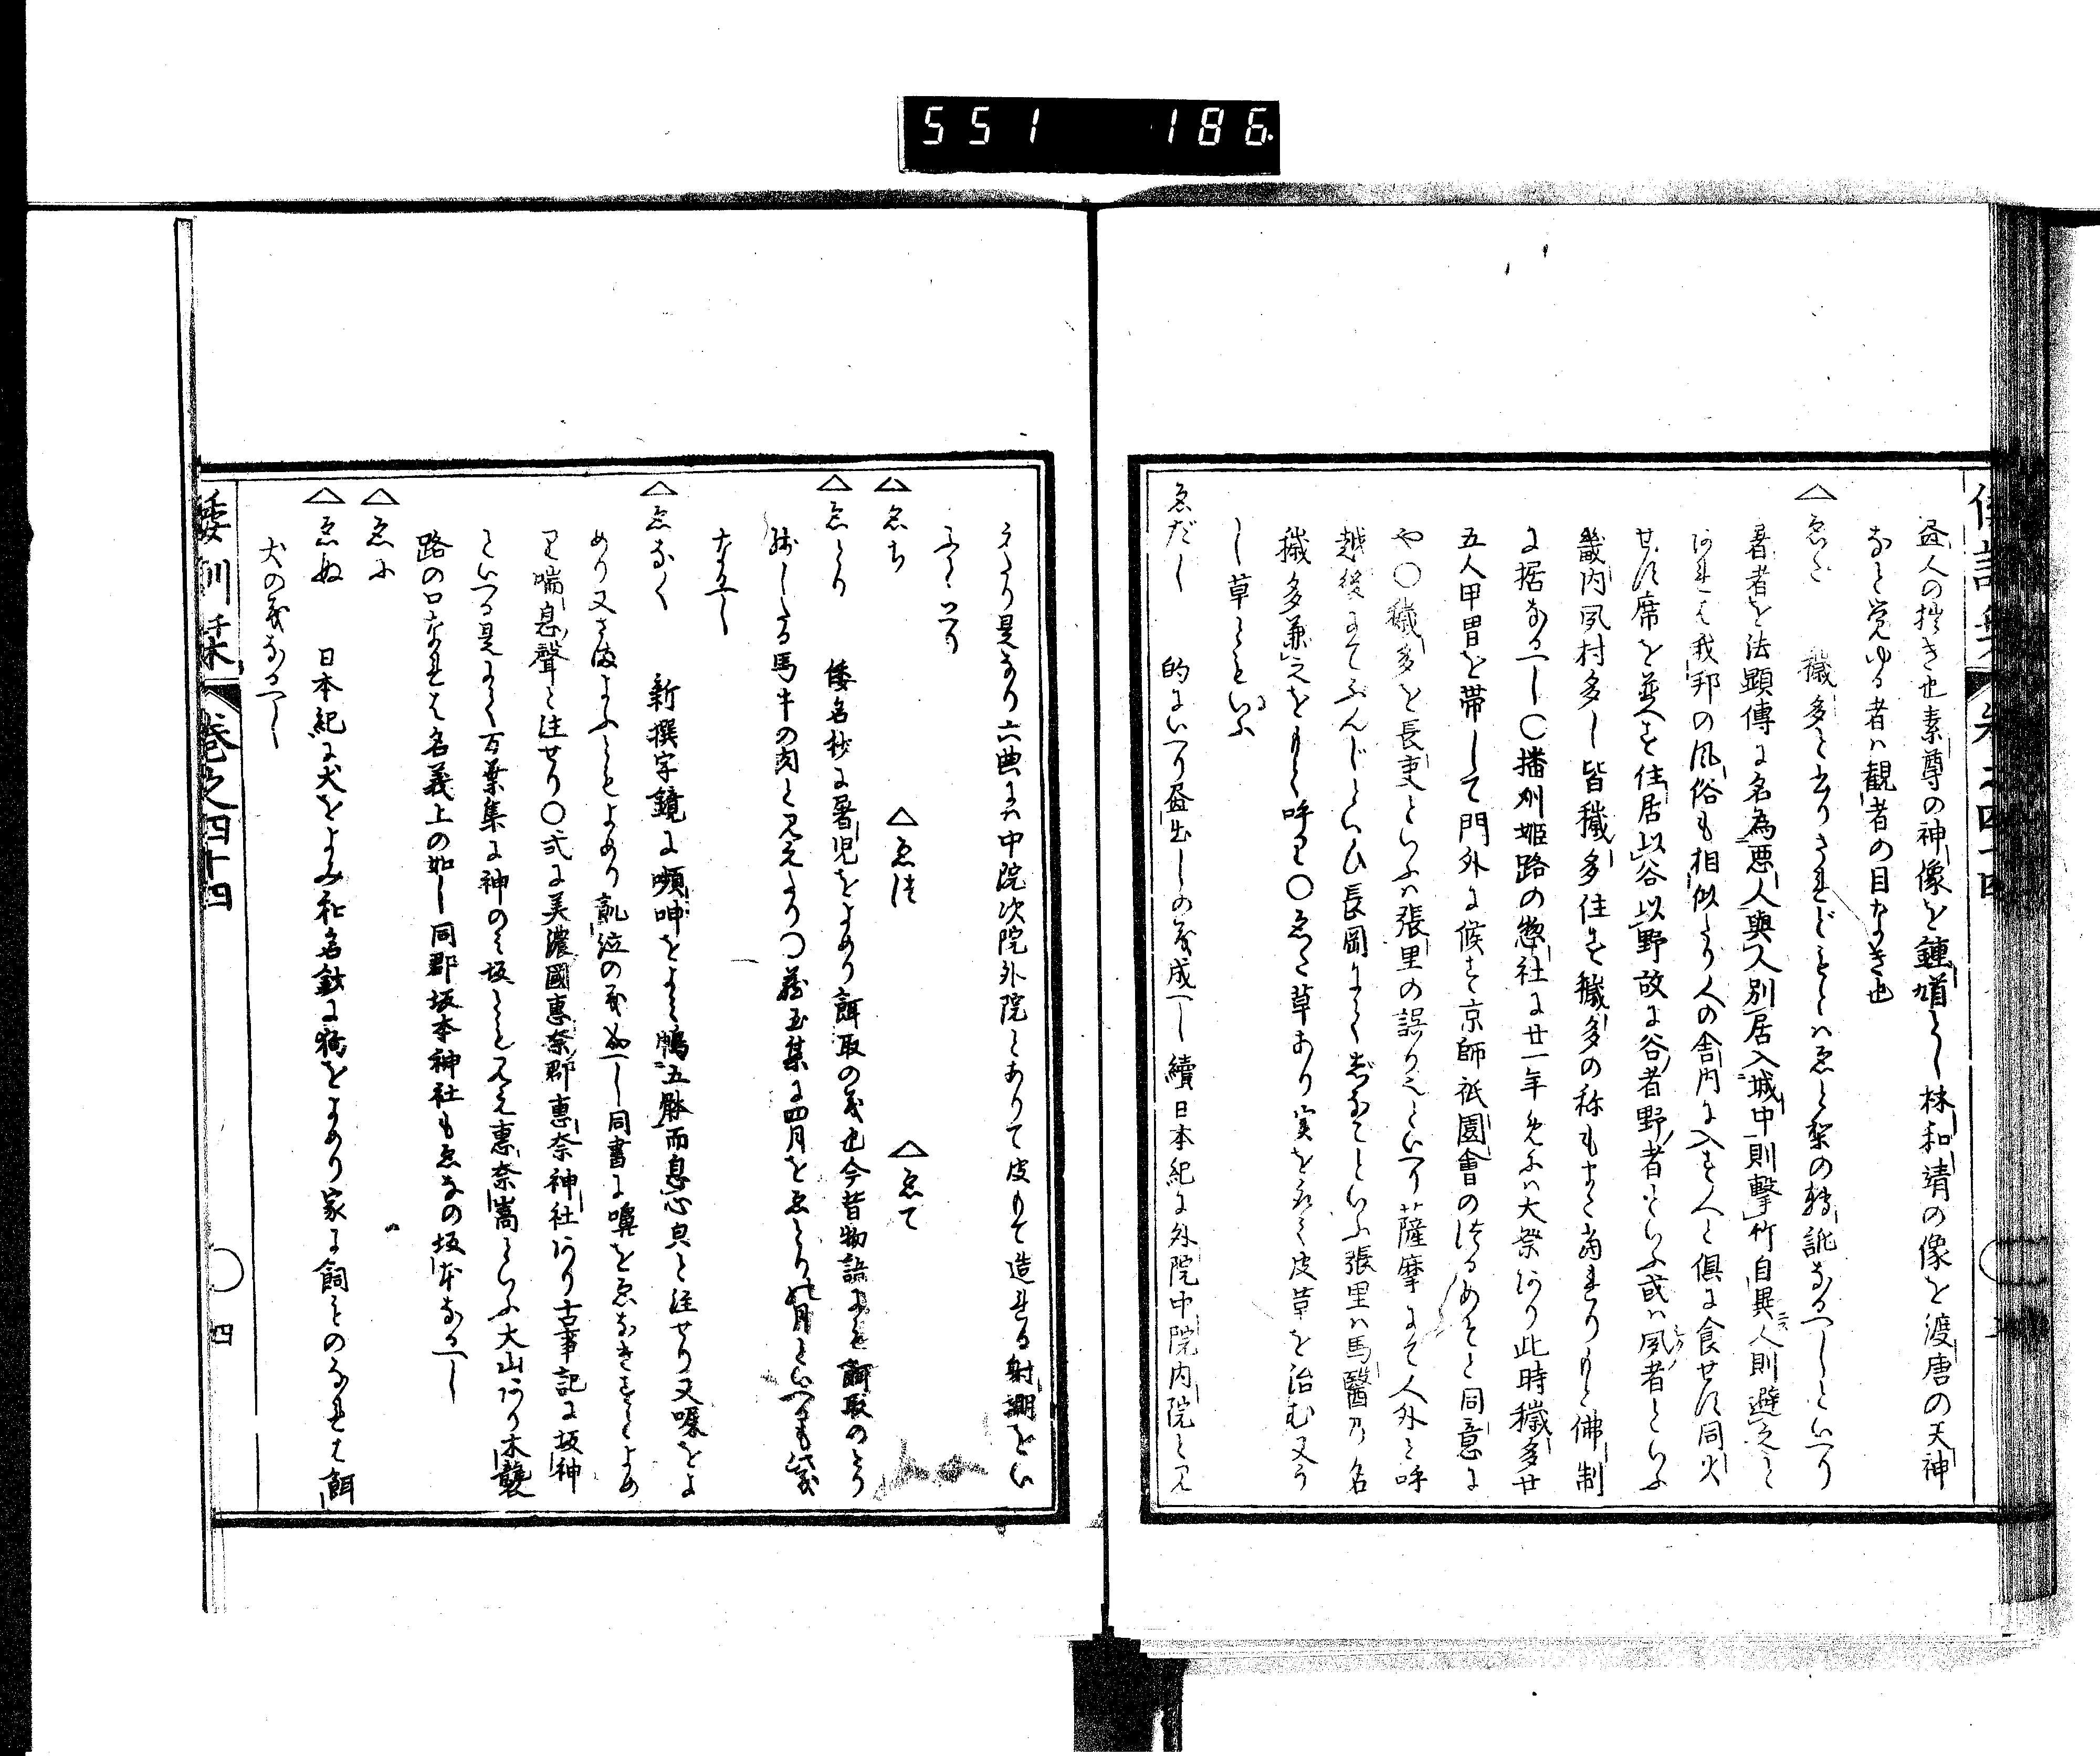 551 186
盆人の拙き也素尊の神像を鍾馗とし林和靖の像を渡唐の天神
なと覚ゆる者ハ観者の目なき也
△ゑた 穢多と書りされどもとハゑと梨の轉訛なるへしといへり
暑者を法顕傳に名為悪人與人別居入城中則撃竹自異人則避之と
あれは我邦の風俗も相似たり人の舎内に入す人と倶に食せす同火
せす席を並へす住居以谷以野故に谷者野者といふ或ハ夙者といふ
畿内夙村多し皆穢多住す穢多の称もよく当れりもと佛制
に据なるへし〇播州姫路の惣社に廿一年めにハ大祭あり此時穢多廿
五人甲冑を帯して門外に候す京師祇園會のつるめそと同意に
や〇穢多を長吏といふハ張里の誤り也といへり薩摩にて人外と呼
越後にてふんじといひ長岡にてといふ張里ハ馬醫乃名
穢多兼之をもて呼り〇ゑた草あり実をもて皮草を治む又う
し草ともいふ
ゑだし 的にいへり盆出しの義成へし續日本紀に外院中院内院と見
えたり是なり六典にハ中院次院外院とありて皮もて造れる射堋をい
ふといへり
△ゑち △ゑつ △ゑて
△ゑとり 倭名抄に屠児をよめり餌取の義也今昔物語にも餌取のとり
残したる馬牛の肉と見えたり〇蔵玉集に四月をゑとり羽月といへるも此義
なるへし
△ゑなく 新撰字鏡に嚬呻をよみ鴨五骵而息心㒵と注せり又喔をよ
めり又さ海よふともよめり訛泣の義なるへし同書に嚊をゑなきすとよめ
り喘息聲と注せり〇式に美濃國惠奈郡惠奈神社あり古事記に坂神
といへる是にて万葉集に神のみ坂とも見え惠奈嵩といふ大山あり木襲
路の口なれは名義上の如し同郡坂本神社もゑなの坂本なるへし
△ゑに
△ゑぬ 日本紀に犬をよみ和名鈔に猗をよめり家に飼ものなれは餌
犬の義なるへし
倭訓栞 巻之四十四 〇 四